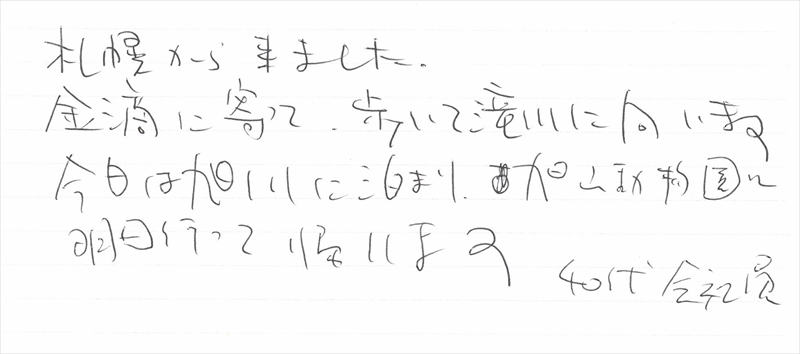 札幌から来ました。
金滴に寄って、歩いて滝川に向います
今日は旭川に泊まり、旭山動物園に
明日行って帰ります
40代 会社員